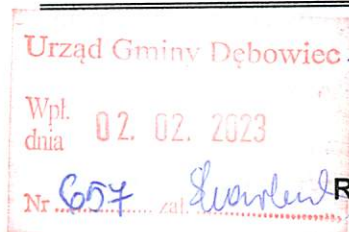 Urząd Gminy Dębowiec
Wpł.
dnia 02. 02. 2023
Nr 657 zał. R